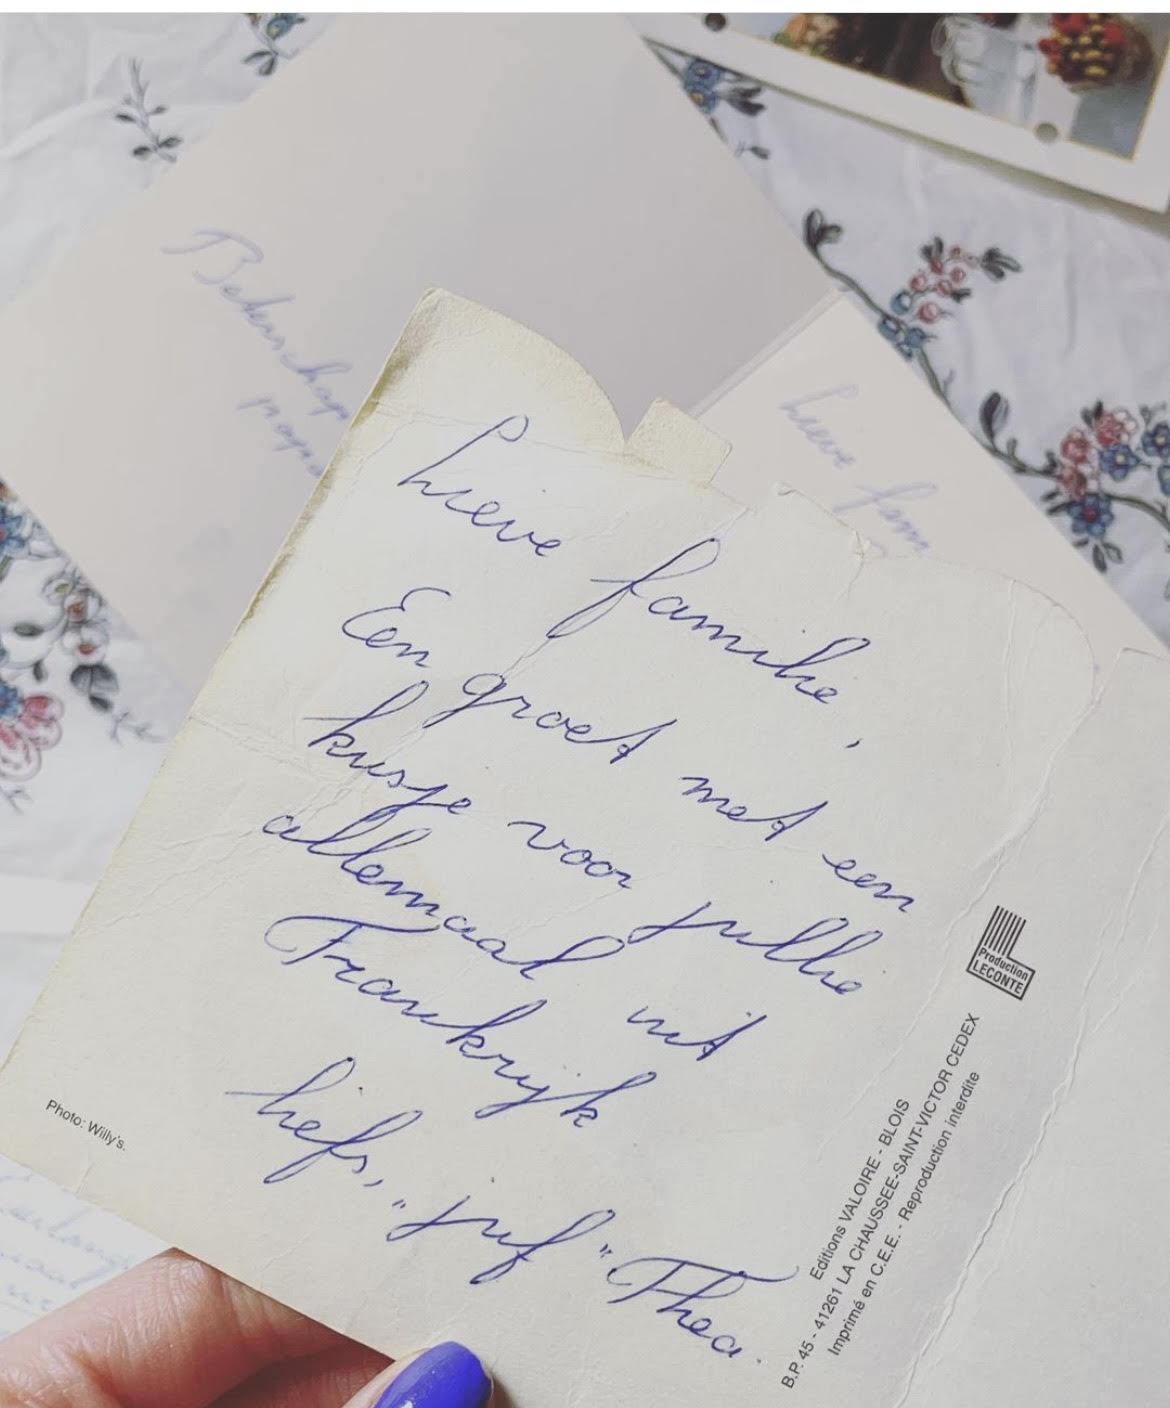 Beterschap
papa
Lieve
fam
Lieve familie,
Een groet met een
kusje voor jullie
allemaal uit
Frankrijk
liefs, "juf" Thea.
Photo: Willy's.
Production
LECONTE
Editions VALOIRE - BLOIS
B.P. 45 - 41261 LA CHAUSSEE-SAINT-VICTOR CEDEX
Imprimé en C.E.E. - Reproduction interdite